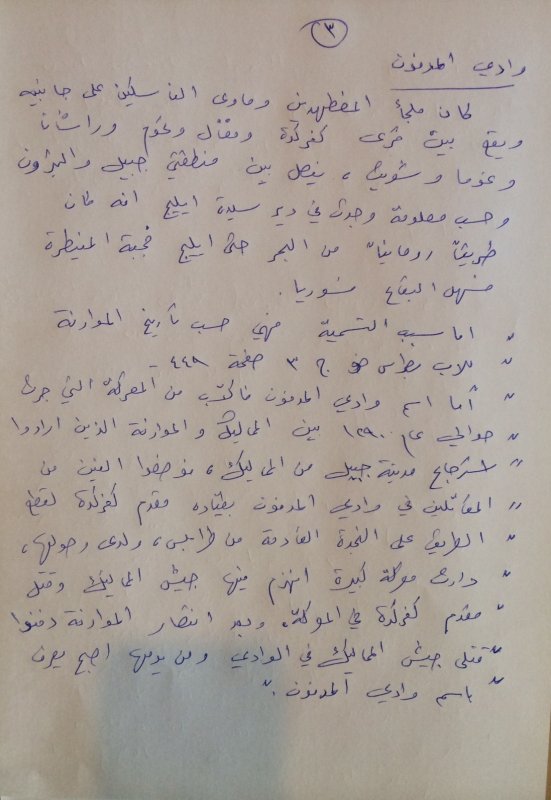 ٣
وادي المدفون
كان ملجأ المضطهدين ومأوى الناسكين على جانبيه
ويقع بين قرى كفركدة و وراشانا
وغوما و ، يفصل بين منطقتي جبيل والبترون
وحسب معلومة وجدت في دير سيدة ايليج انه كان
طريقاً رومانياً من البحر حتى ايليج المنيطرة
سهل البقاع سوريا .
" اما سبب التسمية فهي حسب تاريخ الموارنة
" للاب بطرس ضو ج ٣ صفحة ٤٤٨ -
" أما اسم وادي المدفون فاكتسب من المعركة التي جرت
" حوالي عام ١٢٩٠ بين المماليك والموارنة الذين ارادوا
" استرجاع مدينة جبيل من المماليك ، فوضعوا الفين من
" المقاتلين في وادي المدفون بقياده مقدم كفركدة لقطع
" الطريق على النجدة القادمة من طرابلس ، ولدى وصولها ،
" دارت معركة كبيرة انهزم فيها جيش المماليك وقتل
" مقدم كفركدة في المعركة. وبعد انتصار الموارنة دفنوا
" قتلى جيش المماليك في الوادي ومن يومها اصبح يعرف
" باسم وادي المدفون . "